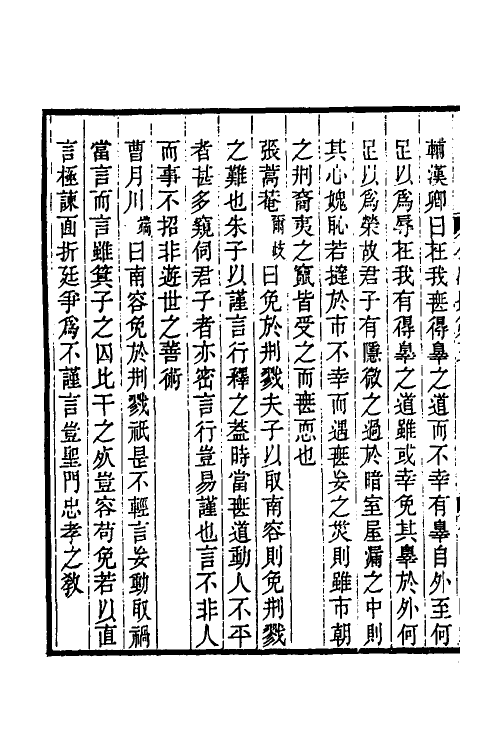 輔漢卿曰在我無得辠之道而不幸有辠自外至何
足以爲辱在我有得辠之道雖或幸免其辠於外何
足以爲榮故君子有隱微之過於暗室屋漏之中則
其心媿恥若撻於市不幸而遇無妄之災則雖市朝
之刑裔夷之竄皆受之而無恧也
張蒿菴爾歧曰免於刑戮夫子以取南容則免刑戮
之難也朱子以謹言行釋之葢時當無道動人不平
者甚多窺伺君子者亦密言行豈易謹也言不非人
而事不招非遊世之善術
曹月川端曰南容免於刑戮祇是不輕言妄動取禍
當言而言雖箕子之囚比干之死豈容苟免若以直
言極諫面折廷爭爲不謹言豈聖門忠孝之敎